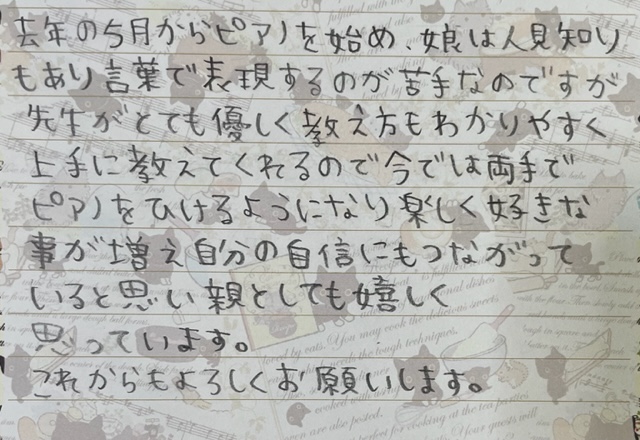 去年の5月からピアノを始め、娘は人見知り
もあり言葉で表現するのが苦手なのですが
先生がとても優しく教え方もわかりやすく
上手に教えてくれるので今では両手で
ピアノをひけるようになり楽しく好きな
事が増え自分の自信にもつながって
いると思い親としても嬉しく
思っています。
これからもよろしくお願いします。